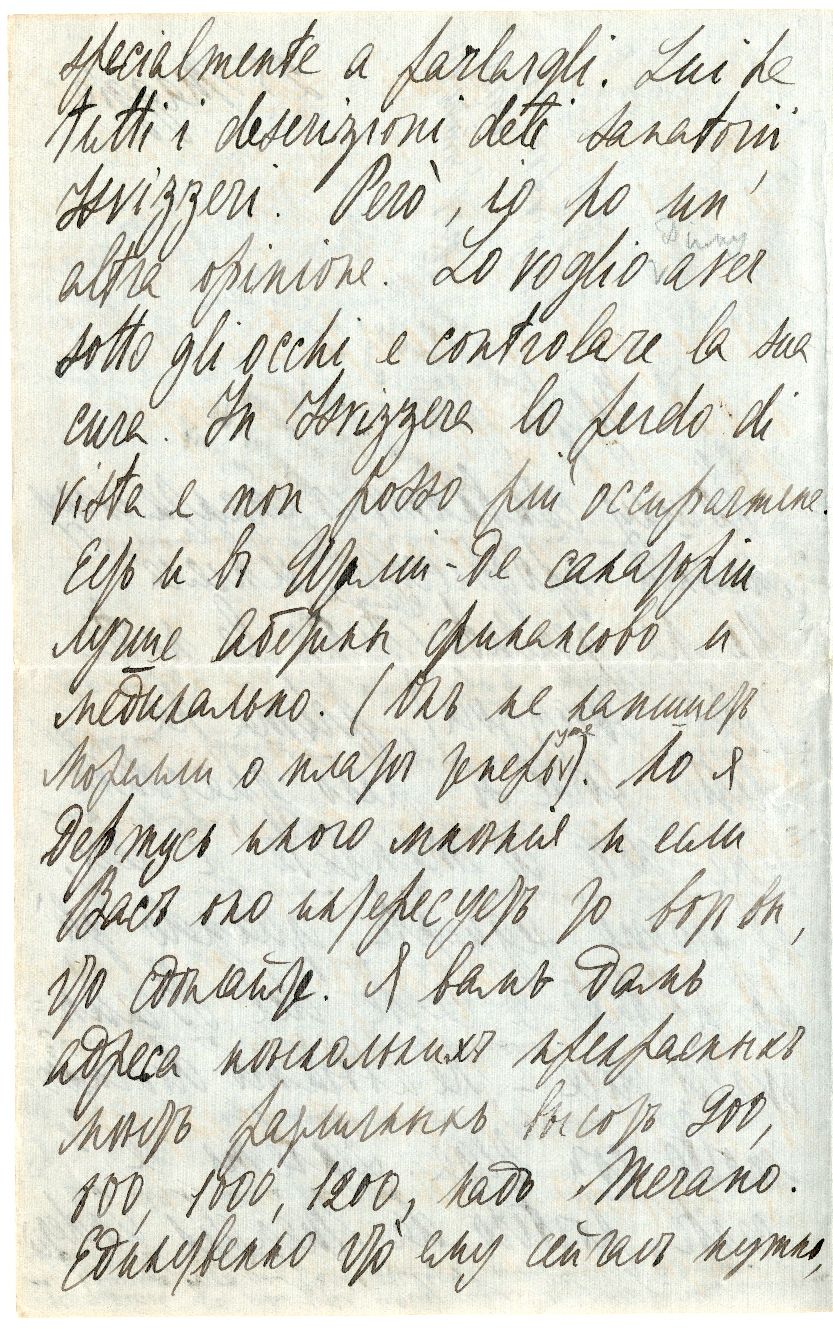 specialmente a parlargli. Lui ha
tutti i descrizioni deti sanatorii
Isvizzeri. Però, io ho un'
altra opinione. Lo voglio aver
sotto gli occhi e controlare la sua
cura. In Isvizzera lo perdo di
vista e non posso più occuparmene.
Есть и въ санаторіи
лучше Абетины финансово и
медикально. (Онъ не напишетъ
Морелли о платѣ теперь уже). Но я
держусь иного мнѣнія и если
Васъ оно интересуетъ то вотъ вы,
что сдѣлайте. Я вамъ дамъ
адреса нѣсколькихъ прекрасныхъ
мѣстъ различныхъ высотъ 900,
800, 1000, 1200, надъ Merano.
Единственно что ему сейчасъ нужно,